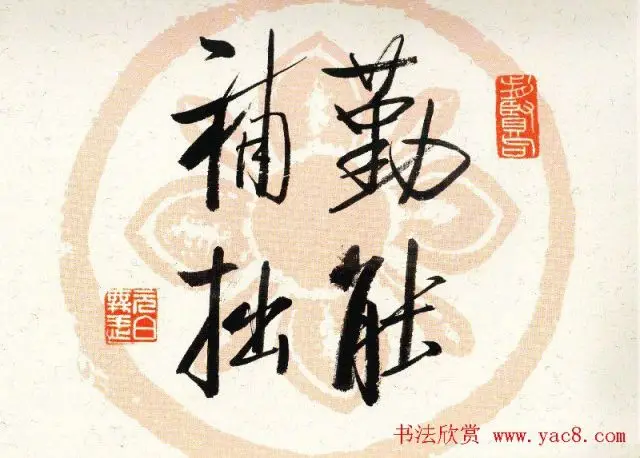 勤能
补拙
元白
书法欣赏 www.yac8.com